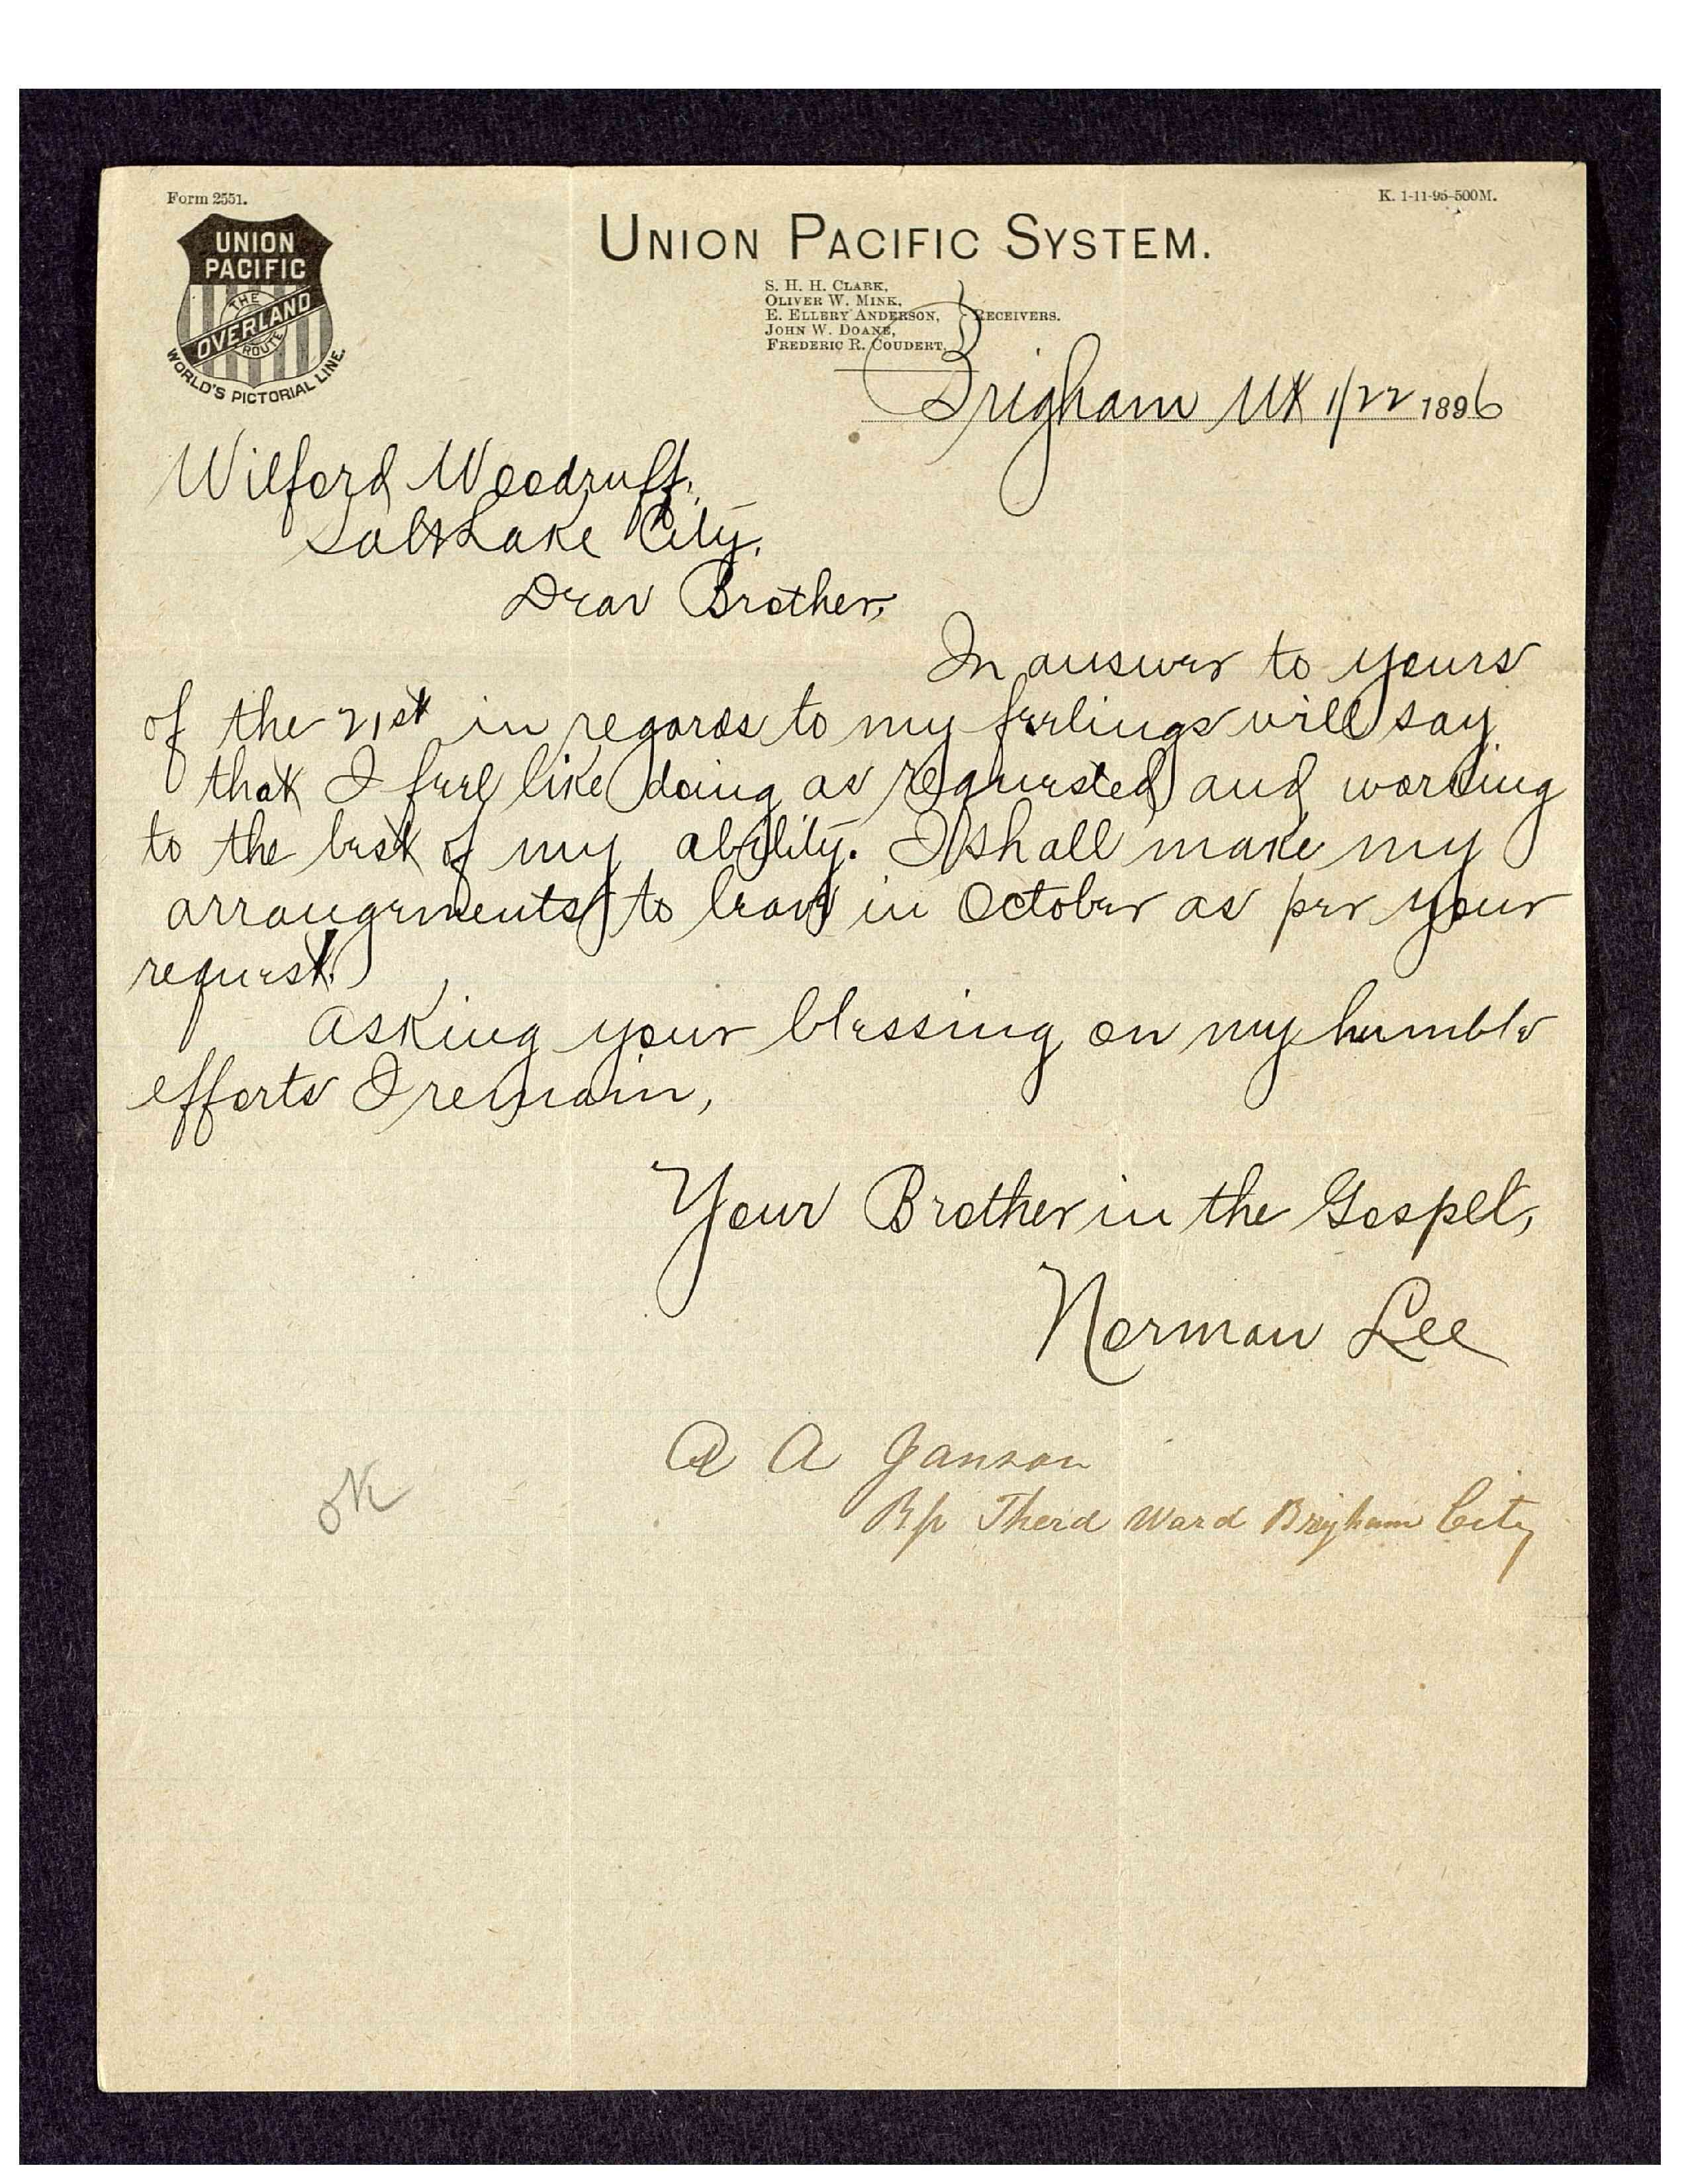 Form 2551.
K. 1-11-95-500M.
UNION
PACIFIC
THE
OVERLAND
ROUTE
WORLD'S PICTORIAL LINE.
UNION PACIFIC SYSTEM.
S. H. H. CLARK,
OLIVER W. MINK,
E. ELLERY ANDERSON, RECEIVERS.
JOHN W. DOANE,
FREDERIC R. COUDERT,
Brigham Ut 1/22 1896
Wilford Woodruff,
Salt Lake City,
Dear Brother,
In answer to yours
of the 21st in regards to my feelings will say
that I feel like doing as requested and working
to the best of my ability. I shall make my
arrangements to leave in October as per your
request.
Asking your blessing on my humble
efforts I remain,
Your Brother in the Gospel,
Norman Lee
A Janson
Bp Therd Ward Brigham City
OK